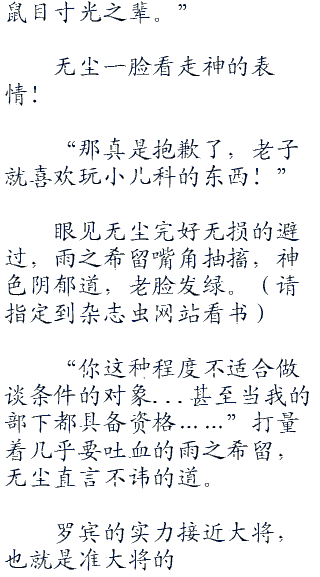 鼠目寸光之辈。”
无尘一脸看走神的表
情！
“那真是抱歉了，老子
就喜欢玩小儿科的东西！”
眼见无尘完好无损的避
过，雨之希留嘴角抽搐，神
色阴郁道，老脸发绿。（请
指定到杂志虫网站看书）
“你这种程度不适合做
谈条件的对象...甚至当我的
部下都具备资格……”打量
着几乎要吐血的雨之希留，
无尘直言不讳的道。
罗宾的实力接近大将，
也就是准大将的